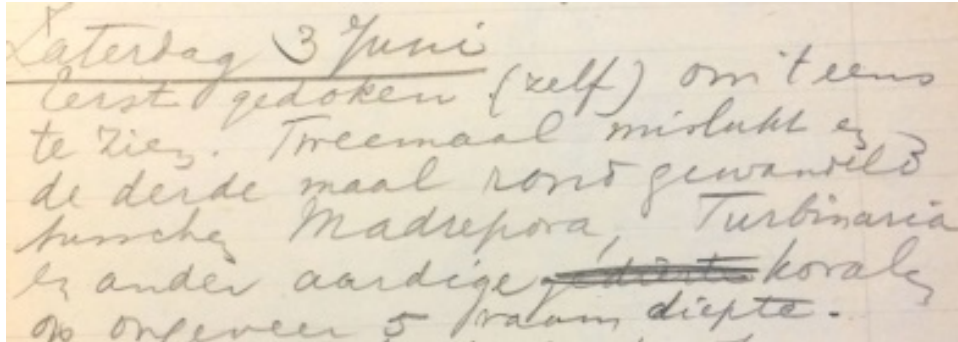 Zaterdag 3 Juni
Eerst gedoken (zelf) om 't eens
te zien. Tweemaal mislukt en
de derde maal rond gewandeld
tusschen Madrepora, Turbinaria
en ander aardige koralen
op ongeveer 5 vaam diepte.